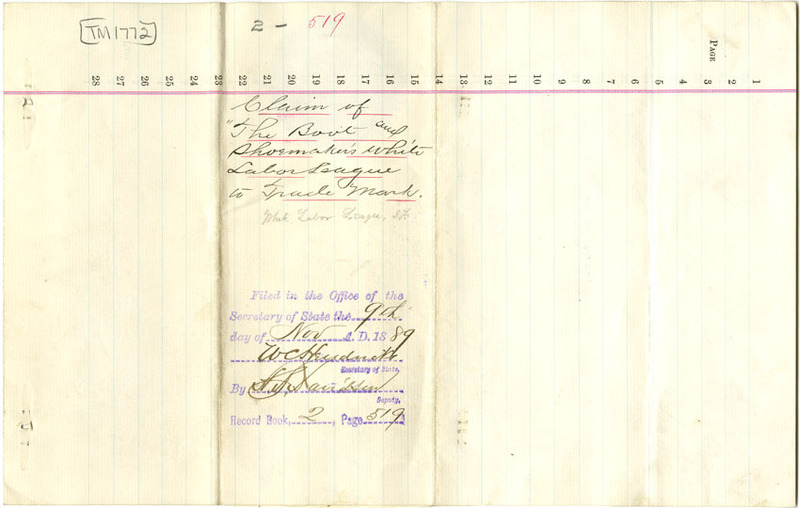 TM1772
2 - 519
PAGE
1
2
3
4
5
6
7
8
9
10
11
12
13
14
15
16
17
18
19
20
21
22
23
24
25
26
27
28
Claim of
"The Boot and
Shoemaker's White
Labor League
to Trade Mark.
White Labor League,
Filed in the Office of the
Secretary of State the 9th
day of Nov A. D. 1889
W C Hendricks
Secretary of State.
By
Deputy.
Record Book, 2, Page 519